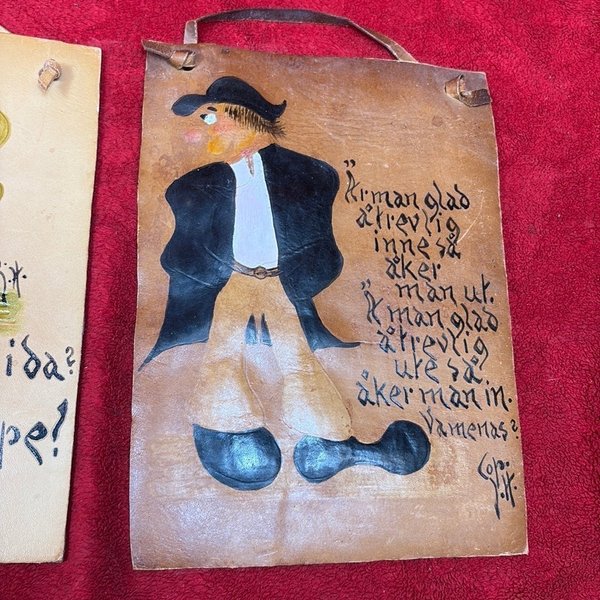 ida?
pe!
Är man glad
å trevlig
inne så
åker
man ut.
Ä man glad
å trevlig
ute så
åker man in.
Va menas?